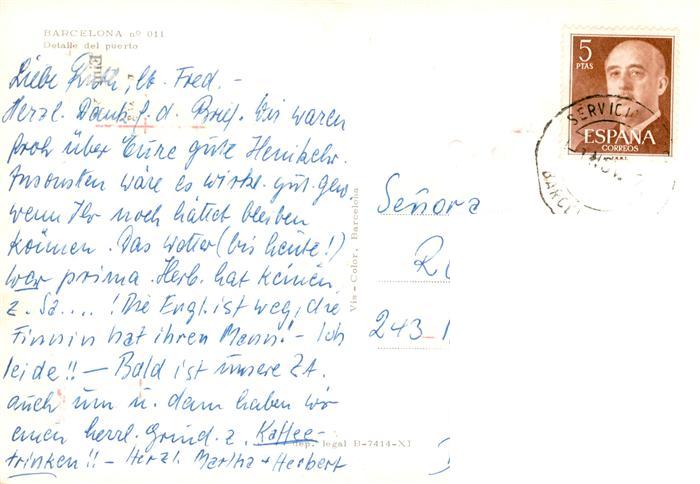 BARCELONA nº 011
Detalle del puerto
Liebe Ruth, lb. Fred. -
Herzl. Dank f. d. Brief. Wir waren
froh über Eure gute Heimkehr.
Ansonsten wäre es wirkl. gut gew.
wenn Ihr noch hättet bleiben
können. Das Wetter (bis heute!)
war prima. Herb. hat keinen
z. Sa....! Die Engl. ist weg, die
Finnin hat ihren Mann! - Ich
leide!! - Bald ist unsere ZA.
auch um u. dann haben wir
einen herrl. Grund z. Kaffee-
trinken!! - Herzl. Martha + Herbert
Vis-Color, Barcelona
dep. legal B-7414-XI
5
PTAS
ESPAÑA
CORREOS
SERVICI
NOV
BARCEL
Señora
R
243